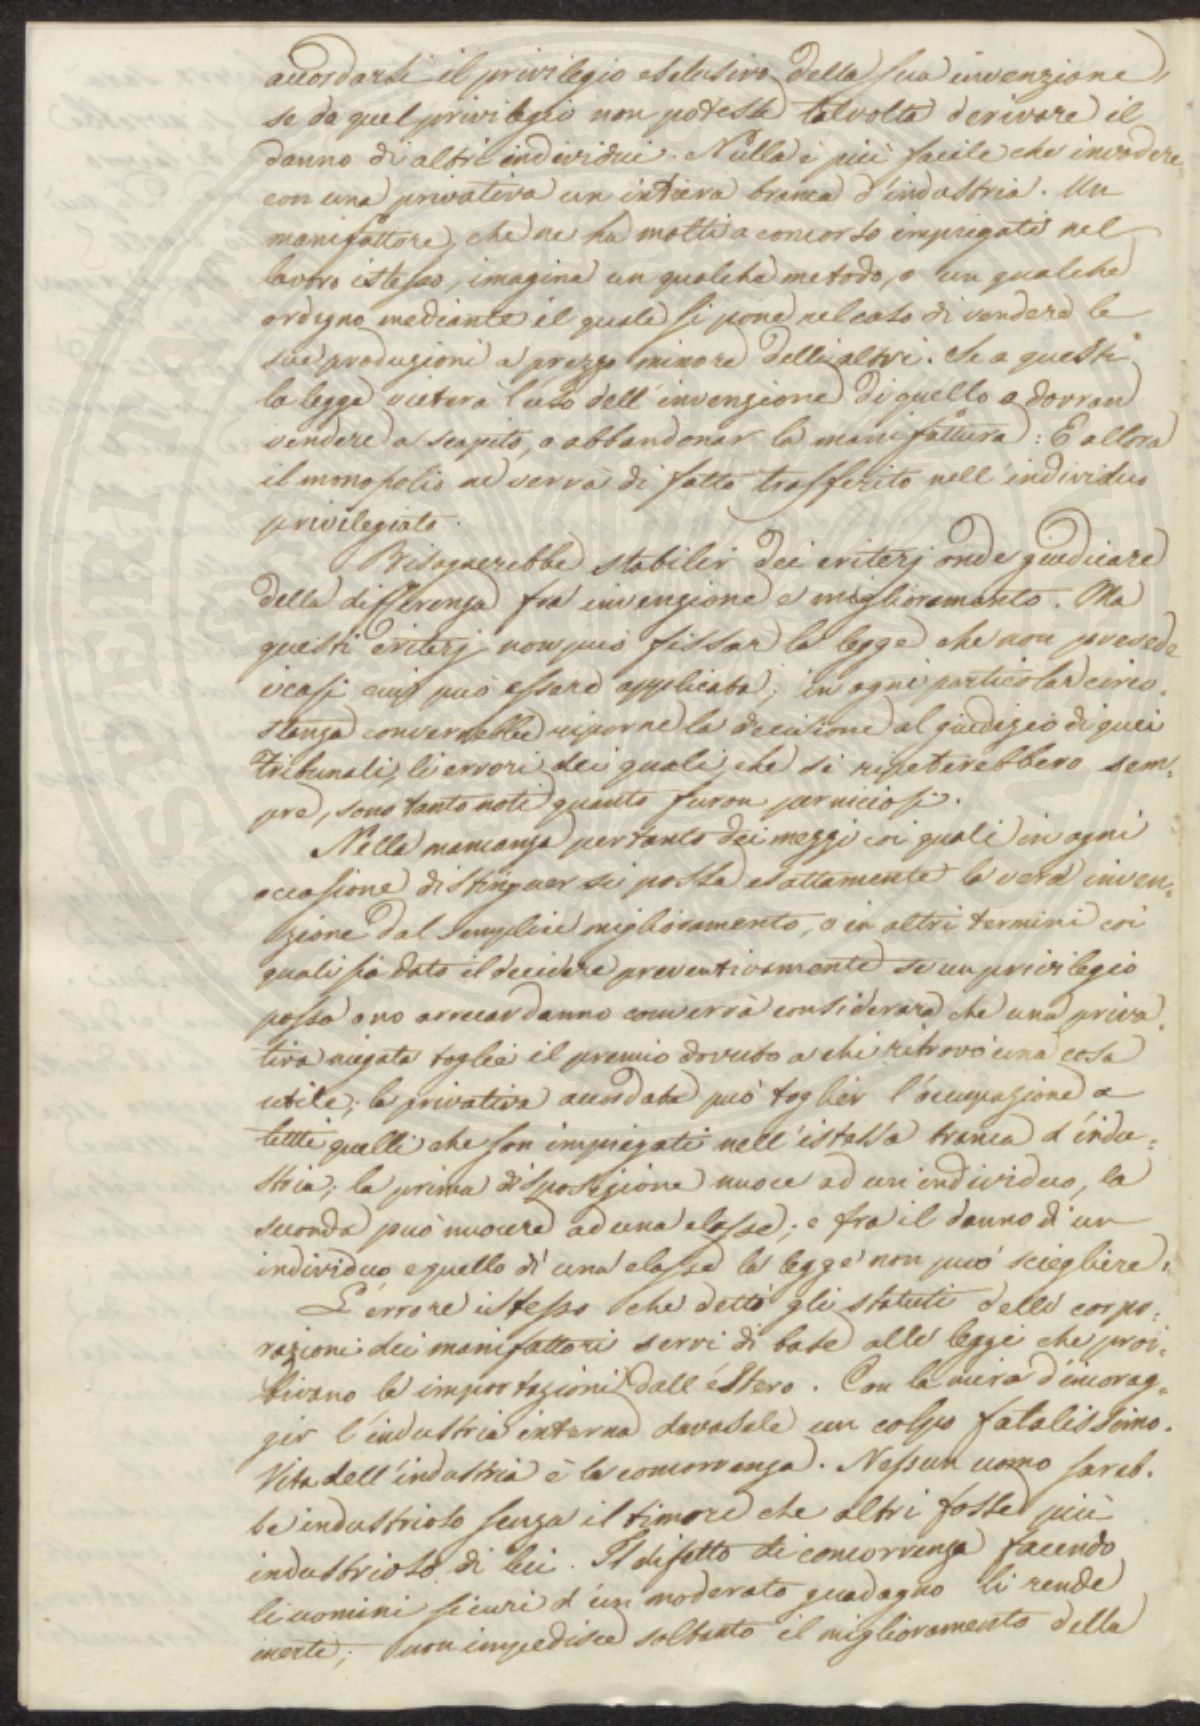 accordarsi il privilegio esclusivo della sua invenzione,
se da quel privilegio non potesse talvolta derivare il
danno di altri individui. Nulla è più facile che invadere
con una privativa un intiera branca d'industria. Un
manifattore, che ne ha molti a concorso impiegati nel
lavoro istesso, imagina un qualche metodo, o un qualche
ordigno mediante il quale si pone nel caso di vendere le
sue produzioni a prezzo minore delli altri. Se a questi
la legge vieterà l'uso dell'invenzione di quello o dovran
vendere a scapito, o abbandonar la manifattura: E allora
il monopolio ne verrà di fatto trasferito nell'individuo
privilegiato.
Bisognerebbe stabilir dei criterj onde giudicare
della differenza fra invenzione e miglioramento. Ma
questi criterj non può fissar la legge che non prevede
i casi cui può essere applicata; in ogni particolar circo-
stanza converrebbe riporne la decisione al giudizio di quei
Tribunali, li errori dei quali, che si ripeterebbero sem=
pre, sono tanto noti quanto furon perniciosi.
Nella mancanza pertanto dei mezzi coi quali in ogni
occasione distinguer si possa esattamente la vera inven=
zione dal semplice miglioramento, o in altri termini coi
quali sia dato il decidere preventivamente se un privilegio
possa o no arrecar danno converrà considerare che una priva-
tiva negata toglie il premio dovuto a chi ritrovò una cosa
utile; la privativa accordata può toglier l'occupazione a
tutti quelli che son impiegati nell'istessa branca d'indu=
stria; la prima disposizione nuoce ad un individuo, la
seconda può nuocere ad una classe; e fra il danno d'un
individuo e quello di una classe la legge non può sciegliere.
L'errore istesso che dettò gli statuti delle corpo=
razioni dei manifattori servì di base alle leggi che proi=
bivano le importazioni dall'estero. Con la mira d'incorag=
gir l'industria interna davasele un colpo fatalissimo.
Vita dell'industria è la concorrenza. Nessun uomo sareb-
be industrioso senza il timore che altri fosse più
industrioso di lui. Il difetto di concorrenza facendo
li uomini sicuri d'un moderato guadagno li rende
inerti; non impedisce soltanto il miglioramento della
SPERITAT